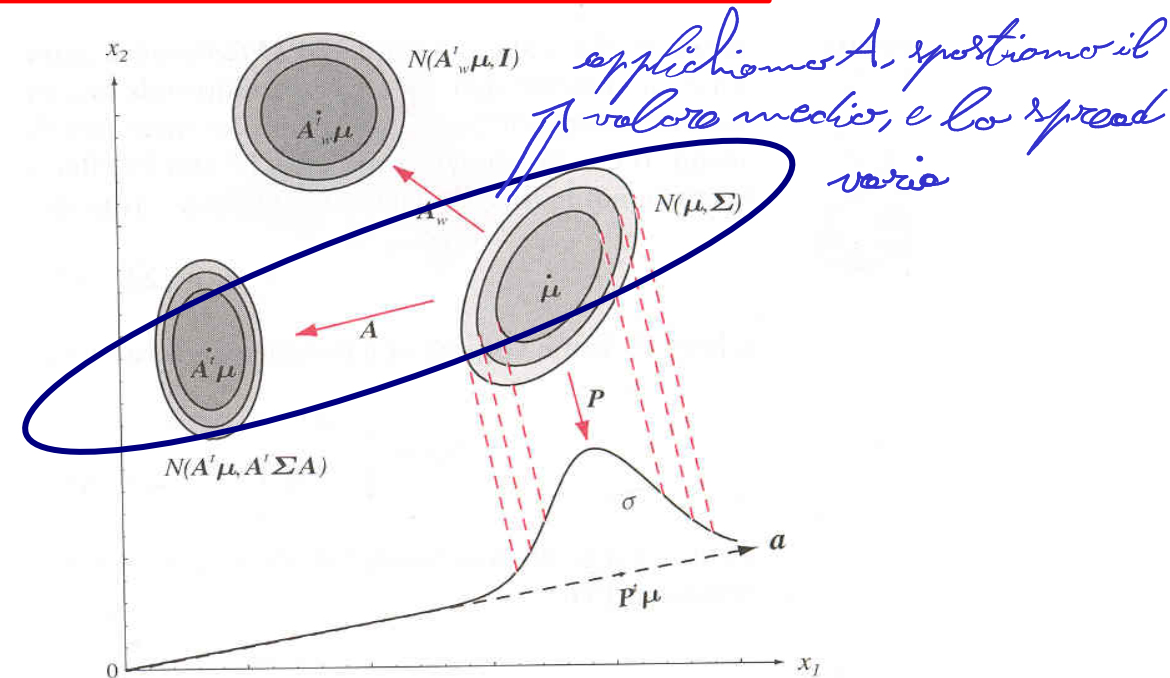 x₂
N(Aᵗ_wμ, I)
applichiamo A, spostiamo il
valore medio, e lo spread
varia
Aᵗ_wμ
A_w
N(μ, Σ)
μ
A
Aᵗμ
P
N(Aᵗμ, AᵗΣA)
σ
a
Pᵗμ
0
x₁